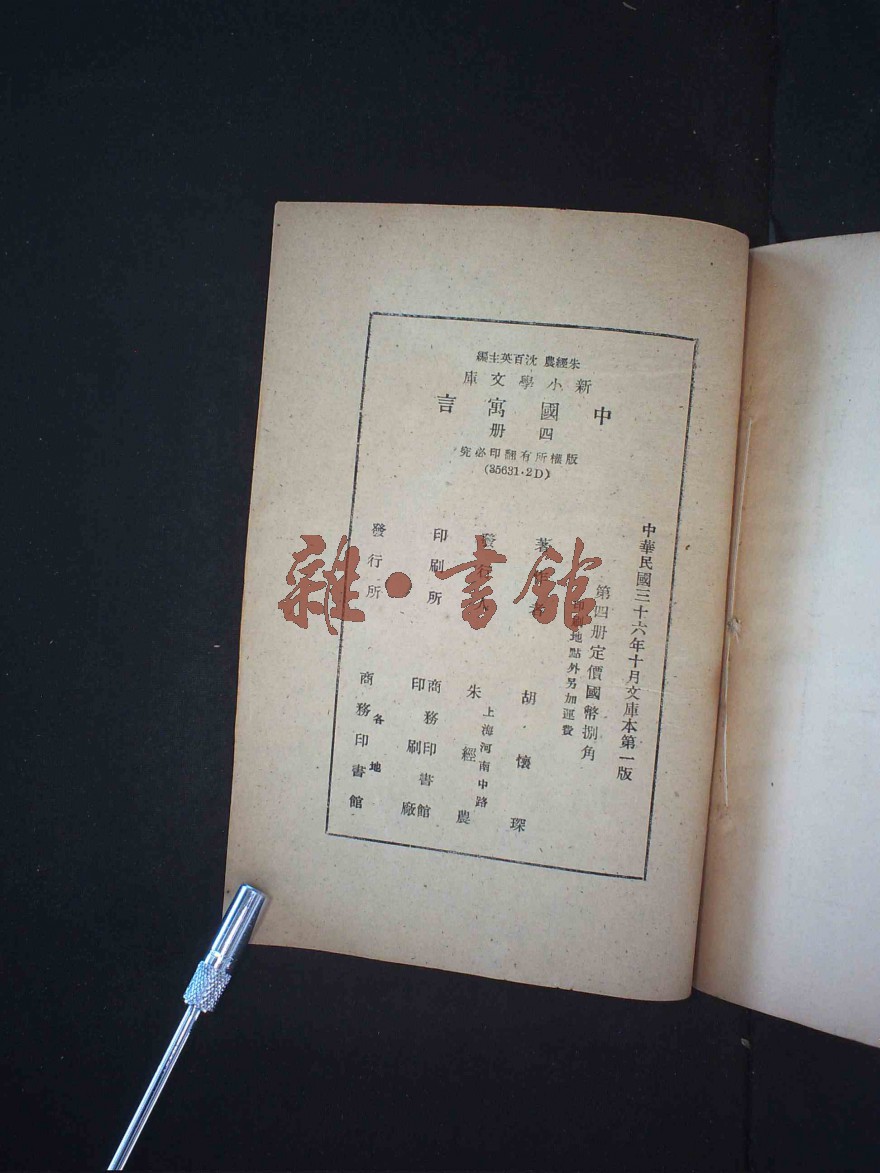 朱經農 沈百英主編
新小學文庫
中國寓言
四册
版權所有翻印必究
(35631·2D)
中華民國三十六年十月文庫本第一版
第四册定價國幣捌角
印刷地點外另加運費
著作者 胡懷琛
發行人 朱經農
上海河南中路
印刷所 商務印書館
印刷廠
發行所 各地
商務印書館
雜·書館